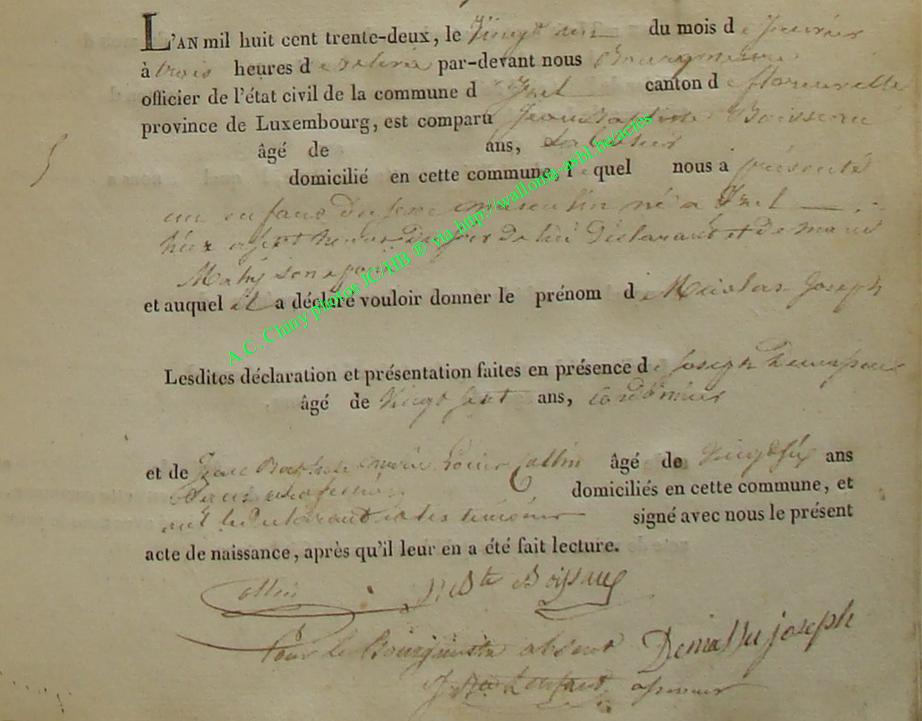 L'AN mil huit cent trente-deux, le Vingt un du mois de
à trois heures de par-devant nous Bourgmestre
officier de l'état civil de la commune d'Izel canton de florenville
province de Luxembourg, est comparu Jean Baptiste Boisseau
âgé de ans,
domicilié en cette commune, lequel nous a présenté
un enfant du sexe masculin né a Izel
hier a sept heures du de lui déclarant et de marie
Mahy son epouse
et auquel il a déclaré vouloir donner le prénom de Nicolas Joseph
Lesdites déclaration et présentation faites en présence de joseph
âgé de Vingt sept ans, cordonnier
et de Jean Baptiste Collin âgé de Vingt six ans
sans profession domiciliés en cette commune, et
ont le declarant et les témoins signé avec nous le présent
acte de naissance, après qu'il leur en a été fait lecture.
Collin
Boisseau
Pour le Bourgmestre absent
joseph
assesseur
A.C. Chiny photos IC/MB © via http://wallonia-asbl.be/actes